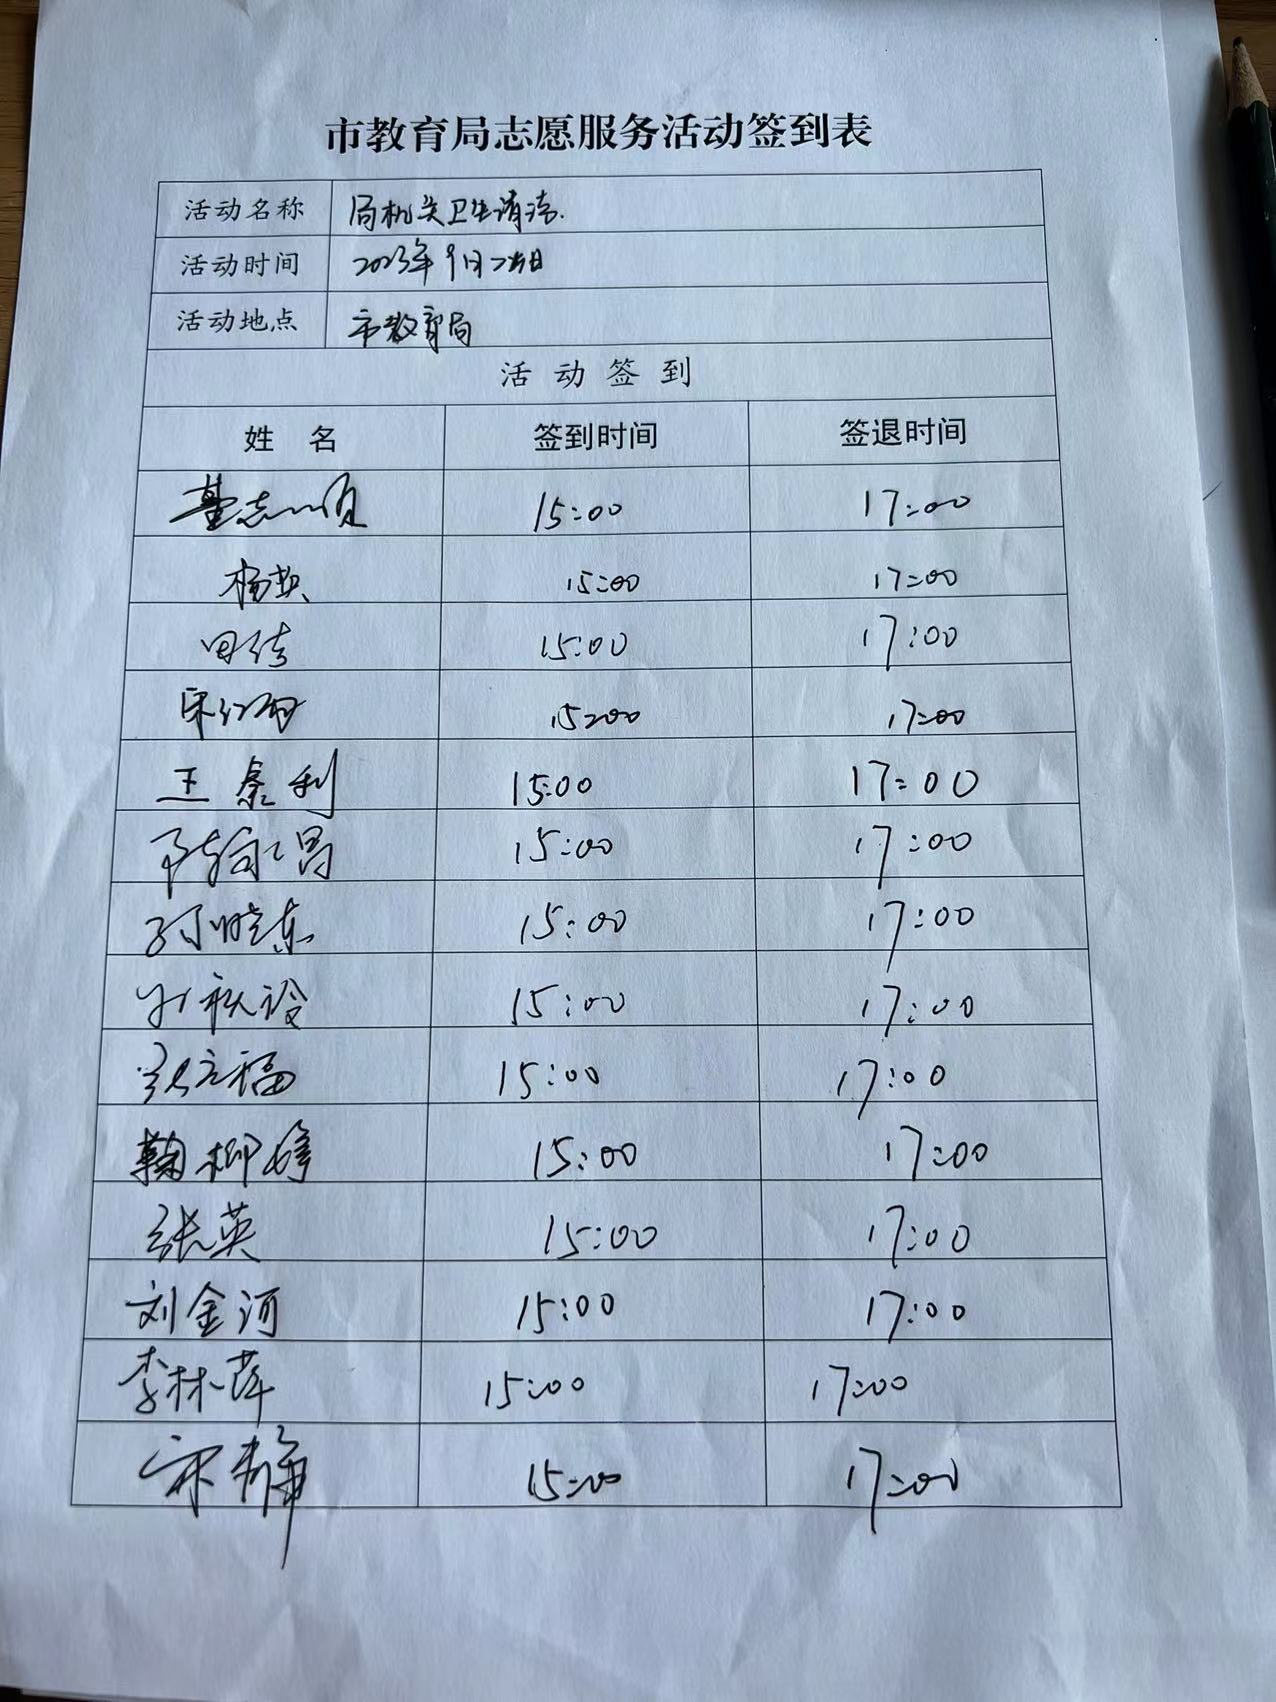 市教育局志愿服务活动签到表
活动名称 局机关卫生清洁.
活动时间 2023年9月25日
活动地点 市教育局
活动签到
姓名 签到时间 签退时间
董志顺 15:00 17:00
杨英 15:00 17:00
田结 15:00 17:00
宋红雨 15:00 17:00
王泰利 15:00 17:00
15:00 17:00
孙晓东 15:00 17:00
15:00 17:00
张立福 15:00 17:00
鞠柳婷 15:00 17:00
张英 15:00 17:00
刘金河 15:00 17:00
李林萍 15:00 17:00
宋静 15:00 17:00